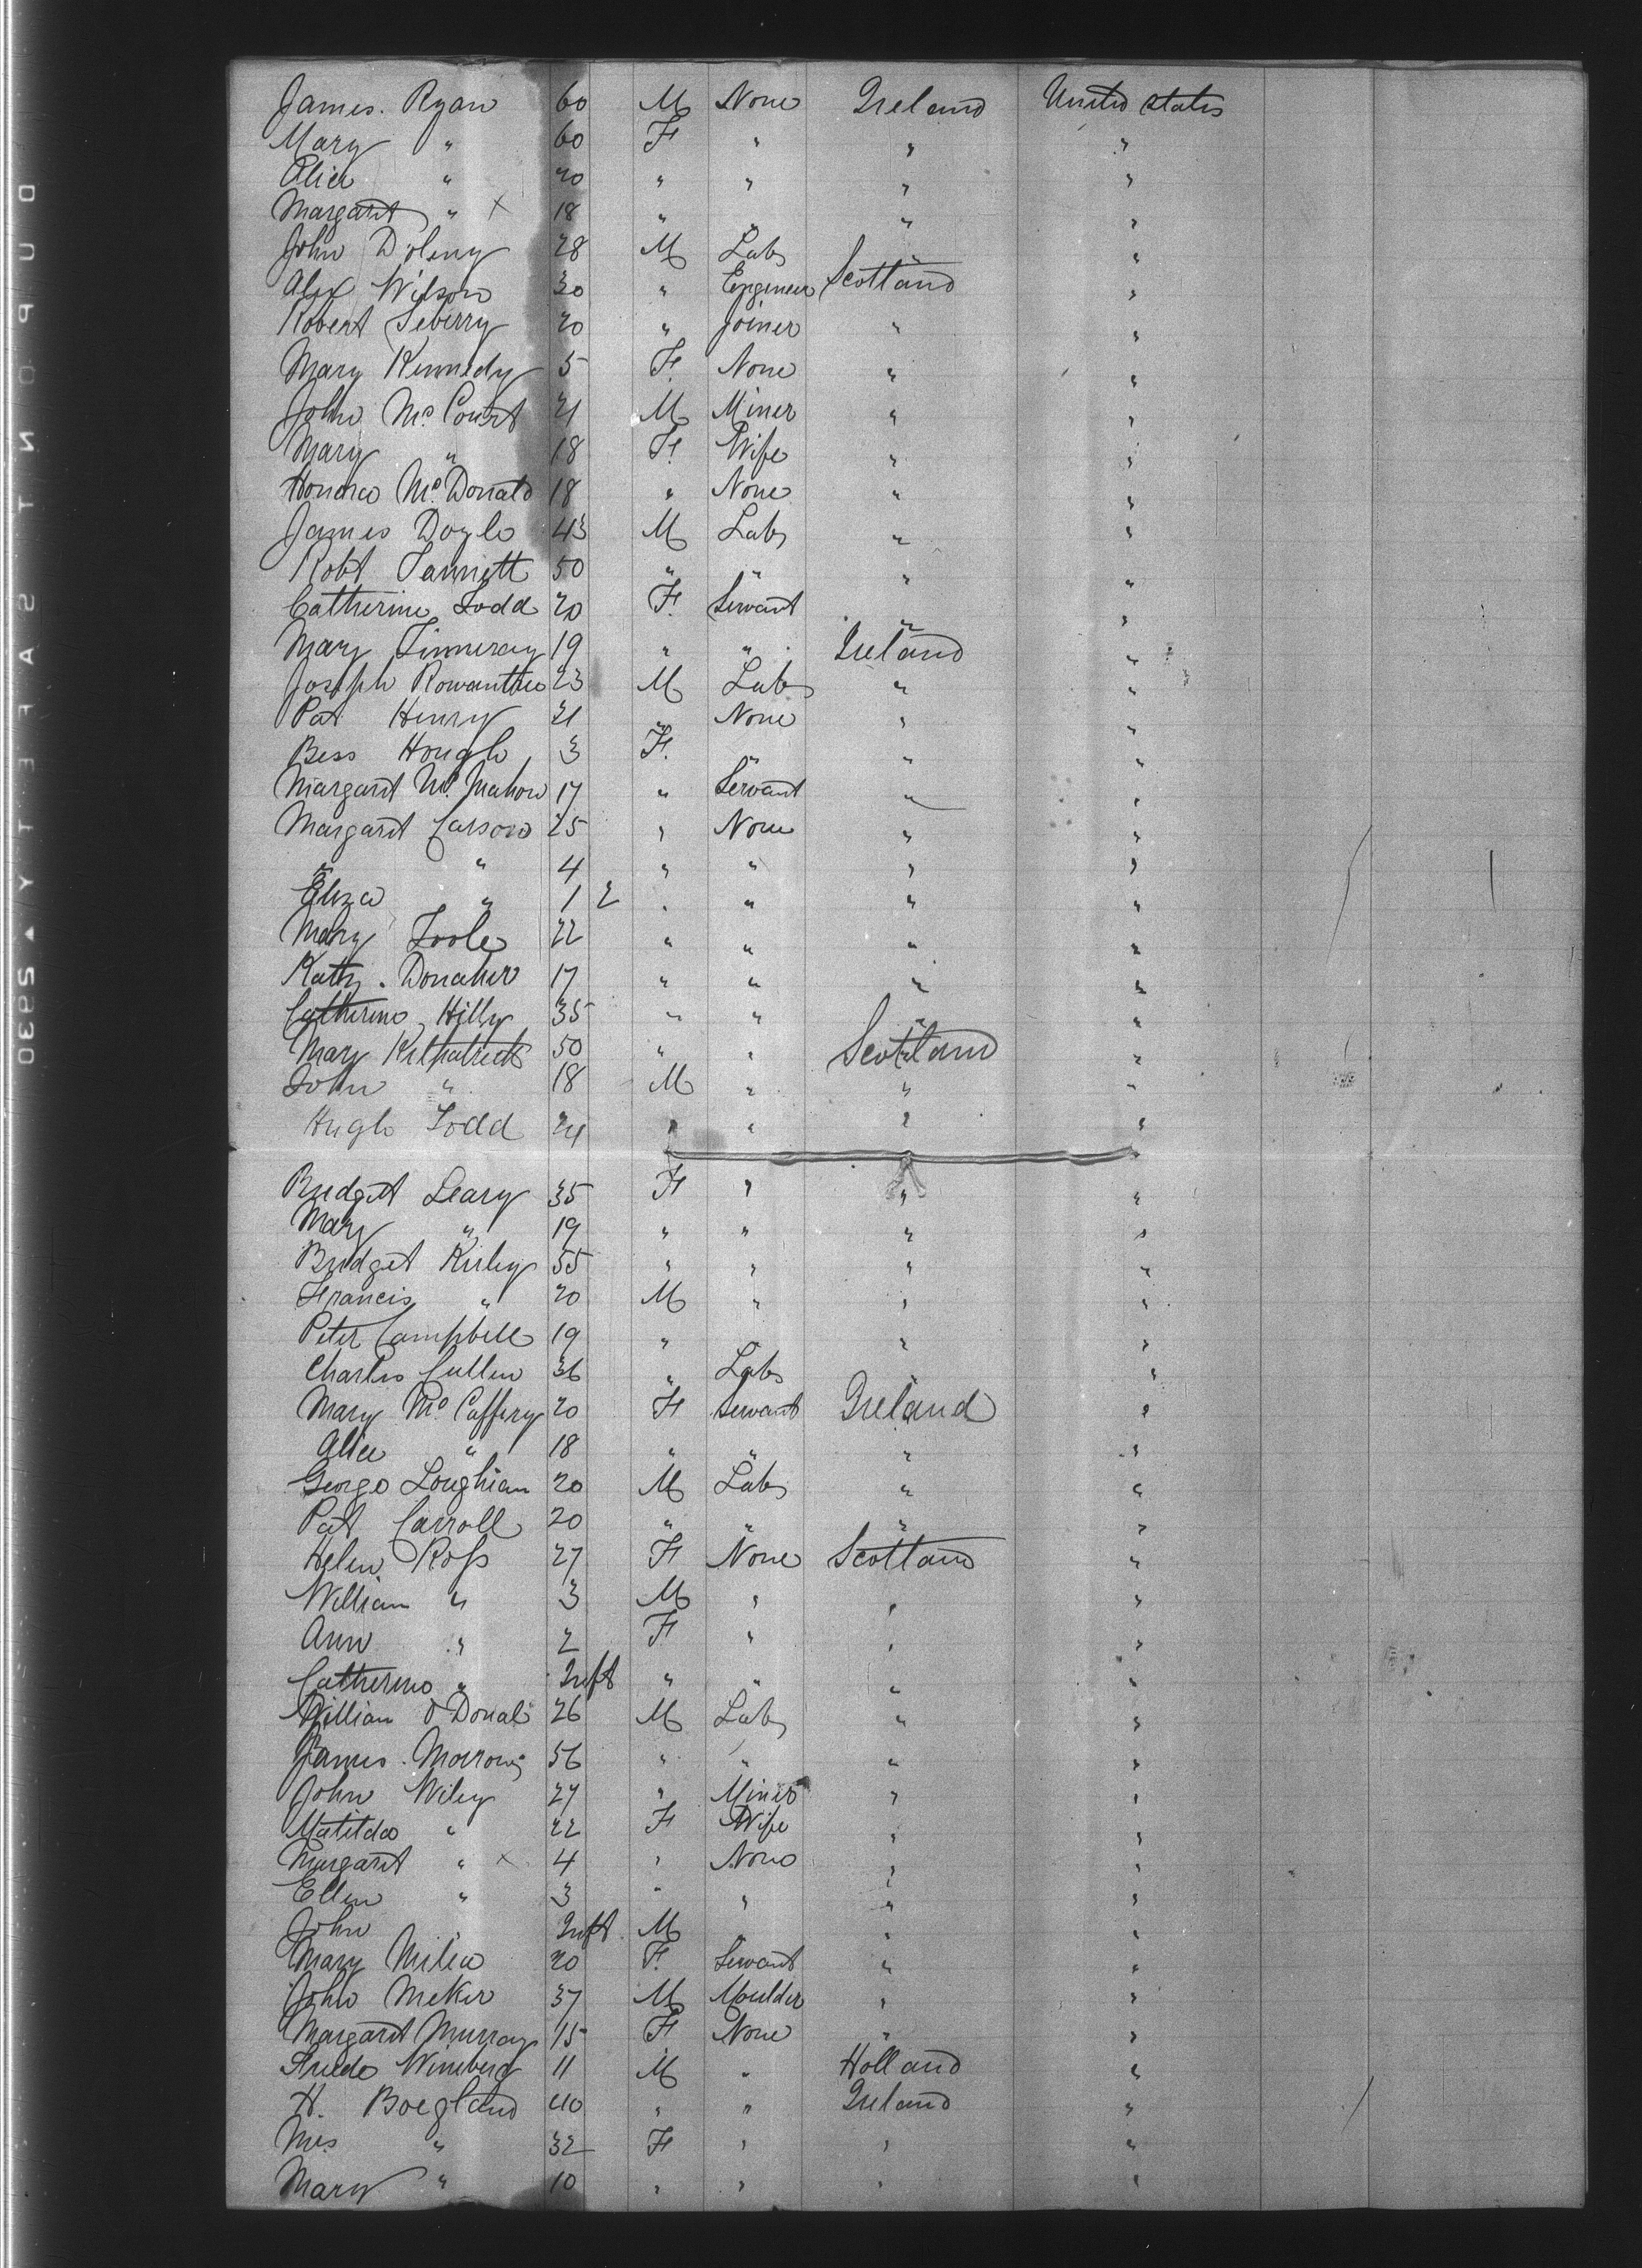 James. Ryan 60 M None Ireland United States
Mary " 60 F " " "
Alice " 20 " " " "
Margaret " X 18 " " " "
John Doleny 28 M Labr " "
Alex Wilson 30 " Engineer Scotland "
Robert Seberry 20 " Joiner " "
Mary Kennedy 5 F None " "
John McCourt 21 M Miner " "
Mary " 18 F Wife " "
Honora McDonald 18 " None " "
James Doyle 43 M Labr " "
Robt Tannett 50 " " " "
Catherine Todd 20 F Servant " "
Mary Finneray 19 " " Ireland "
Joseph Rowantree 23 M Labr " "
Pat Henry 21 " None " "
Bess Hough 3 F " " "
Margaret McMahon 17 " Servant " "
Margaret Carson 25 " None " "
" " 4 " " " "
Eliza " 1 2 " " " "
Mary Toole 22 " " " "
Kath. Donaher 17 " " " "
Catherine Hilly 35 " " " "
Mary Kilpatrick 50 " " Scotland "
John " 18 M " " "
Hugh Todd 24 " " " "
Bridget Leary 35 F " " "
Mary " 19 " " " "
Bridget Kirley 55 " " " "
Francis " 20 M " " "
Peter Campbell 19 " " "
Charles Cullen 36 " Labr "
Mary McCaffery 20 F Servant Ireland "
Alice " 18 " " " "
George Loughian 20 M Labr " "
Pat Carroll 20 " " " "
Helen Ross 27 F None Scotland "
William " 3 M " " "
Ann " 2 F " " "
Catherine " Inft " " " "
William O Donal 26 M Labr " "
James. Morrow 56 " " " "
John Wiley 27 " Miner " "
Matilda " 22 F Wife " "
Margaret " X 4 " None " "
Ellen " 3 " " " "
John Inft M " "
Mary Milea 20 F Servant " "
John Meker 37 M Moulder " "
Margaret Murray 15 F None " "
Wineberg 11 M " Holland "
H. Boegland 40 " " Ireland "
Mrs " 32 F " " "
Mary " 10 " " " "